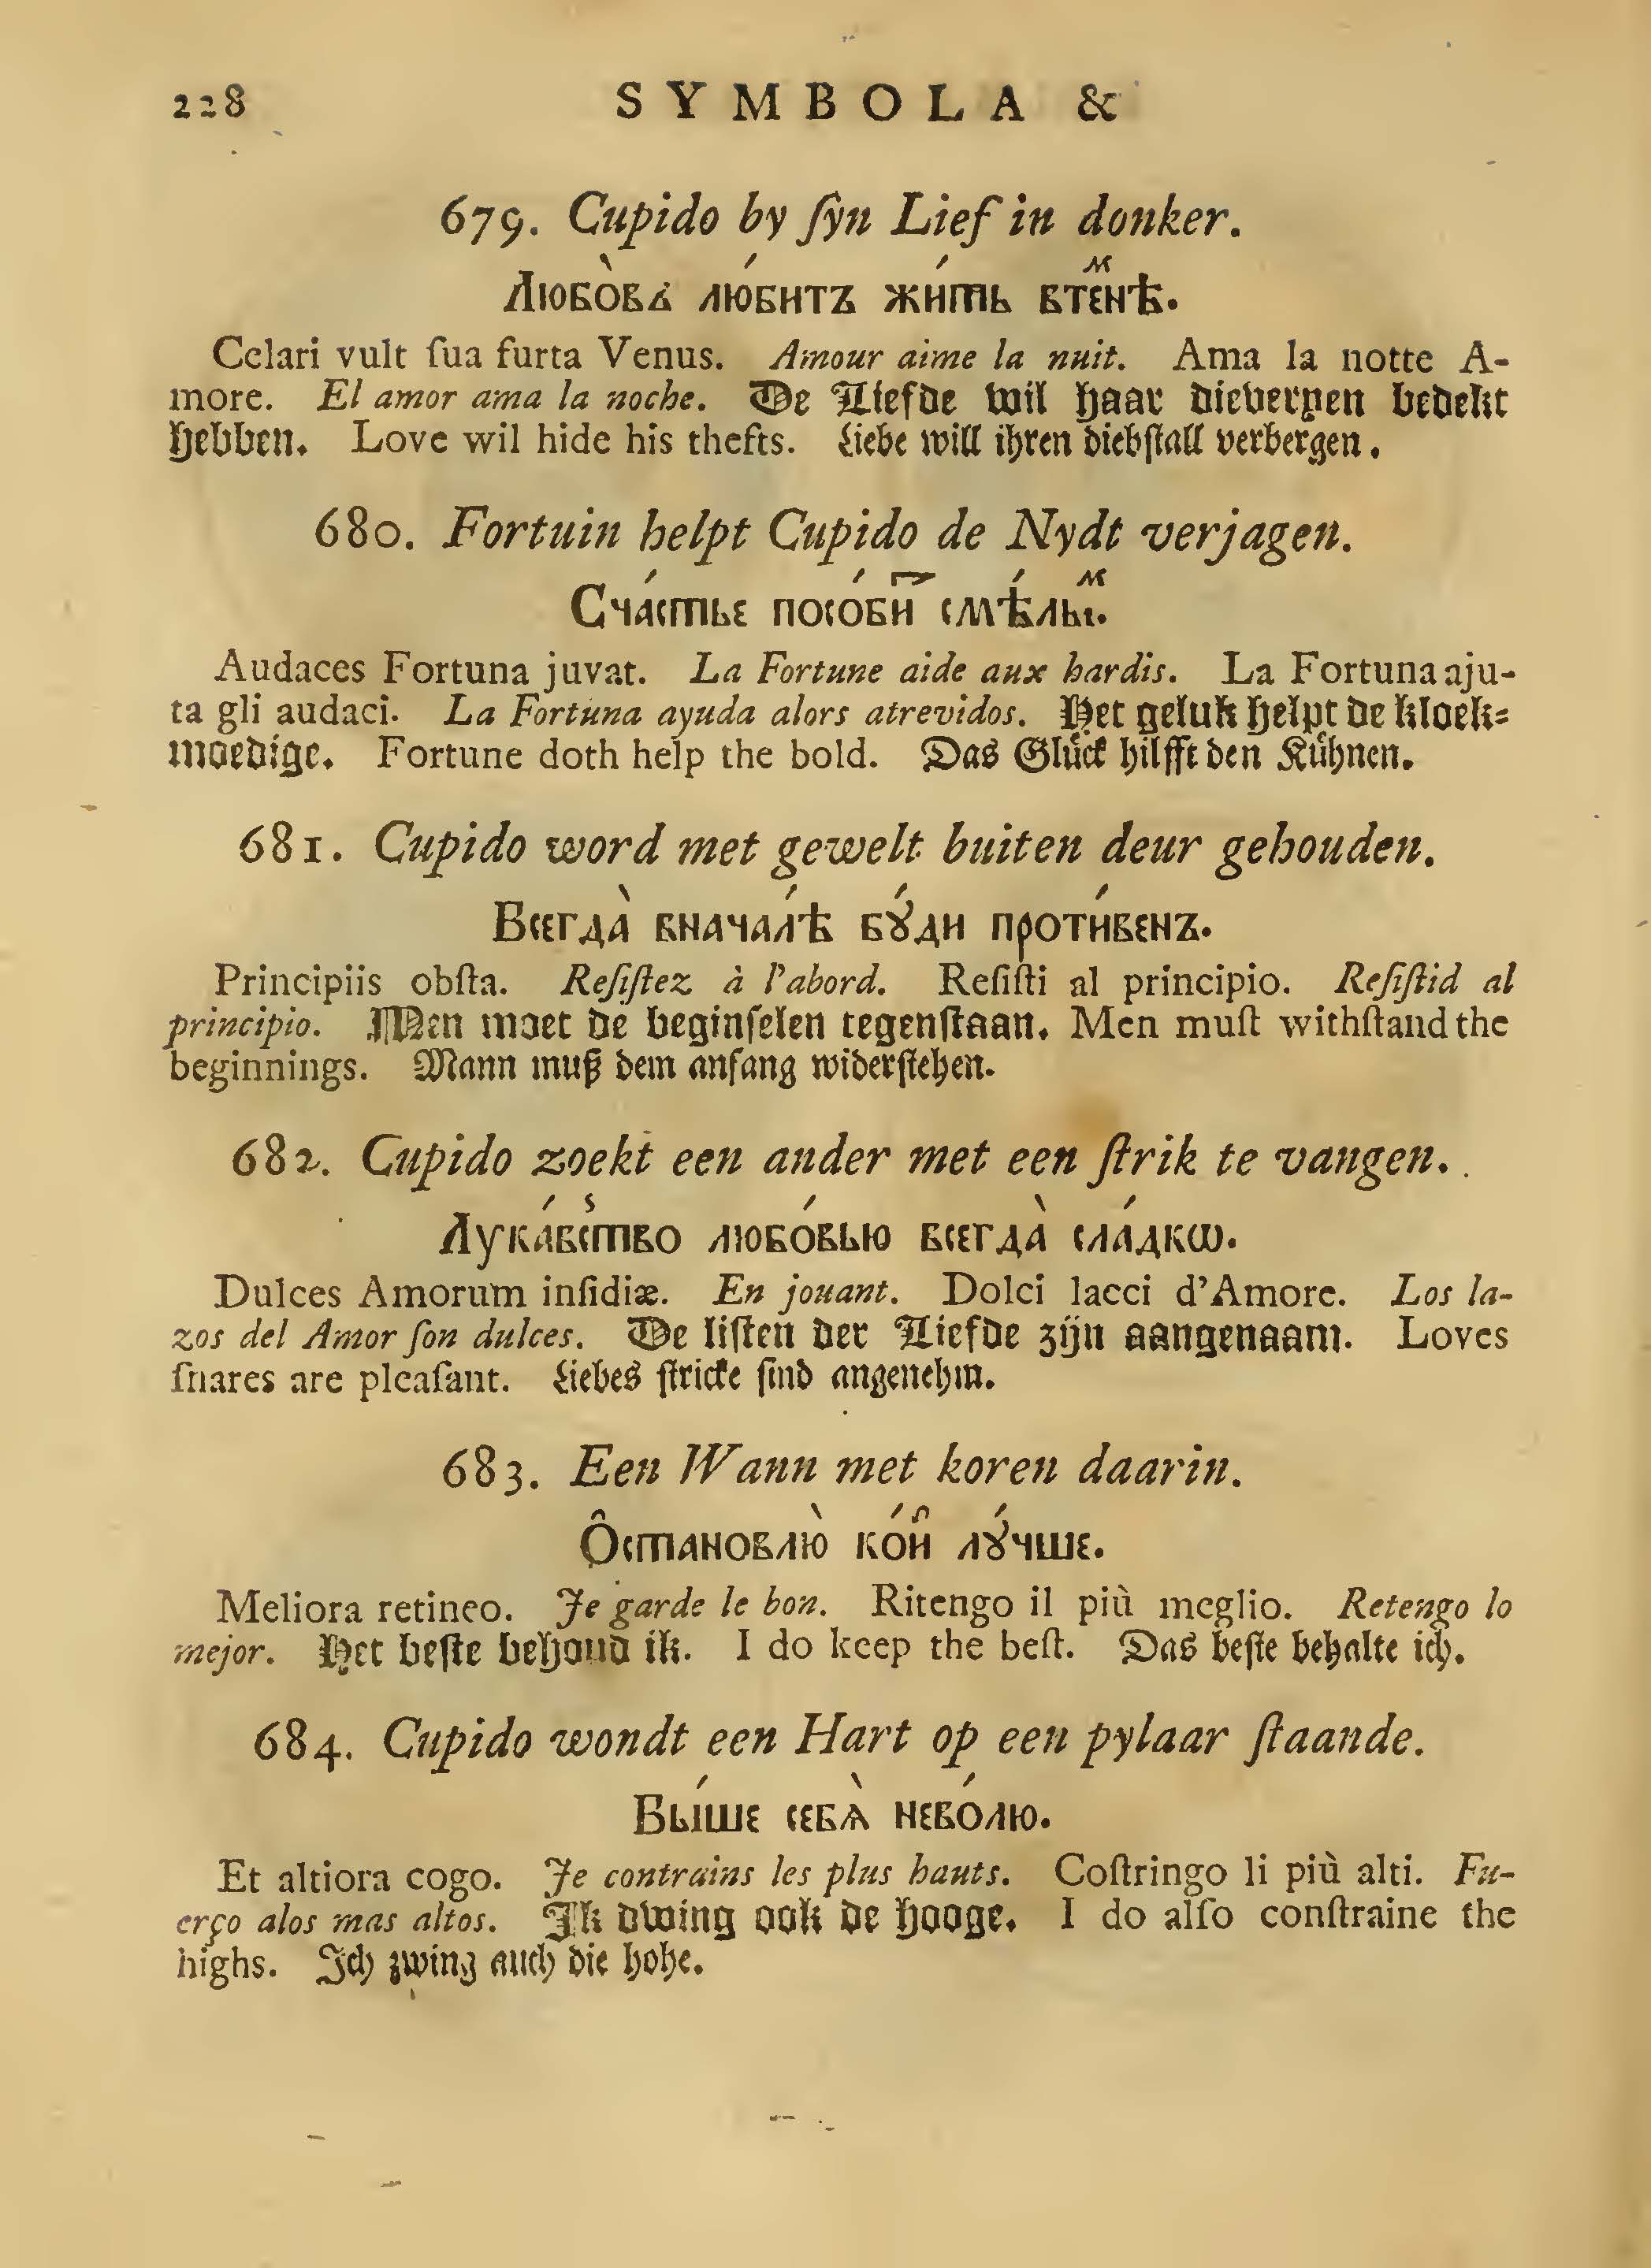 228 SYMBOLA &
679. Cupido by ſyn Lief in donker.
Любо̀ва лю́битъ жи́ть втенѣ.
Celari vult ſua furta Venus. Amour aime la nuit. Ama la notte A-
more. El amor ama la noche. De Liefde wil haar dieveryen bedekt
hebben. Love wil hide his thefts. Liebe will ihren diebſtall verbergen.
680. Fortuin helpt Cupido de Nydt verjagen.
Сча́стье
Audaces Fortuna juvat. La Fortune aide aux hardis. La Fortuna aju-
ta gli audaci. La Fortuna ayuda alors atrevidos. Het geluk helpt de kloek-
moedige. Fortune doth help the bold. Das Glück hilfft den Kühnen.
681. Cupido word met gewelt buiten deur gehouden.
Всегда̀ внача́лѣ бꙋ́ди проти́венъ.
Principiis obſta. Reſiſtez à l'abord. Reſiſti al principio. Reſiſtid al
principio. Men moet de beginſelen tegenſtaan. Men muſt withſtand the
beginnings. Mann muß dem anfang widerſtehen.
682. Cupido zoekt een ander met een ſtrik te vangen.
Лука́вство любо́вью всегда̀ сла́дкѡ.
Dulces Amorum inſidiæ. En jouant. Dolci lacci d'Amore. Los la-
zos del Amor ſon dulces. De liſten der Liefde zijn aangenaam. Loves
ſnares are pleaſant. Liebes ſtricke ſind angenehm.
683. Een Wann met koren daarin.
Ѻстановлю̀ лꙋ́чше.
Meliora retineo. Je garde le bon. Ritengo il più meglio. Retengo lo
mejor. Het beſte behoud ik. I do keep the beſt. Das beſte behalte ich.
684. Cupido wondt een Hart op een pylaar ſtaande.
Вы́ше себѧ̀ нево́лю.
Et altiora cogo. Je contrains les plus hauts. Coſtringo li più alti. Fu-
erço alos mas altos. Ik dwing ook de hooge. I do alſo conſtraine the
highs. Ich zwing auch die hohe.